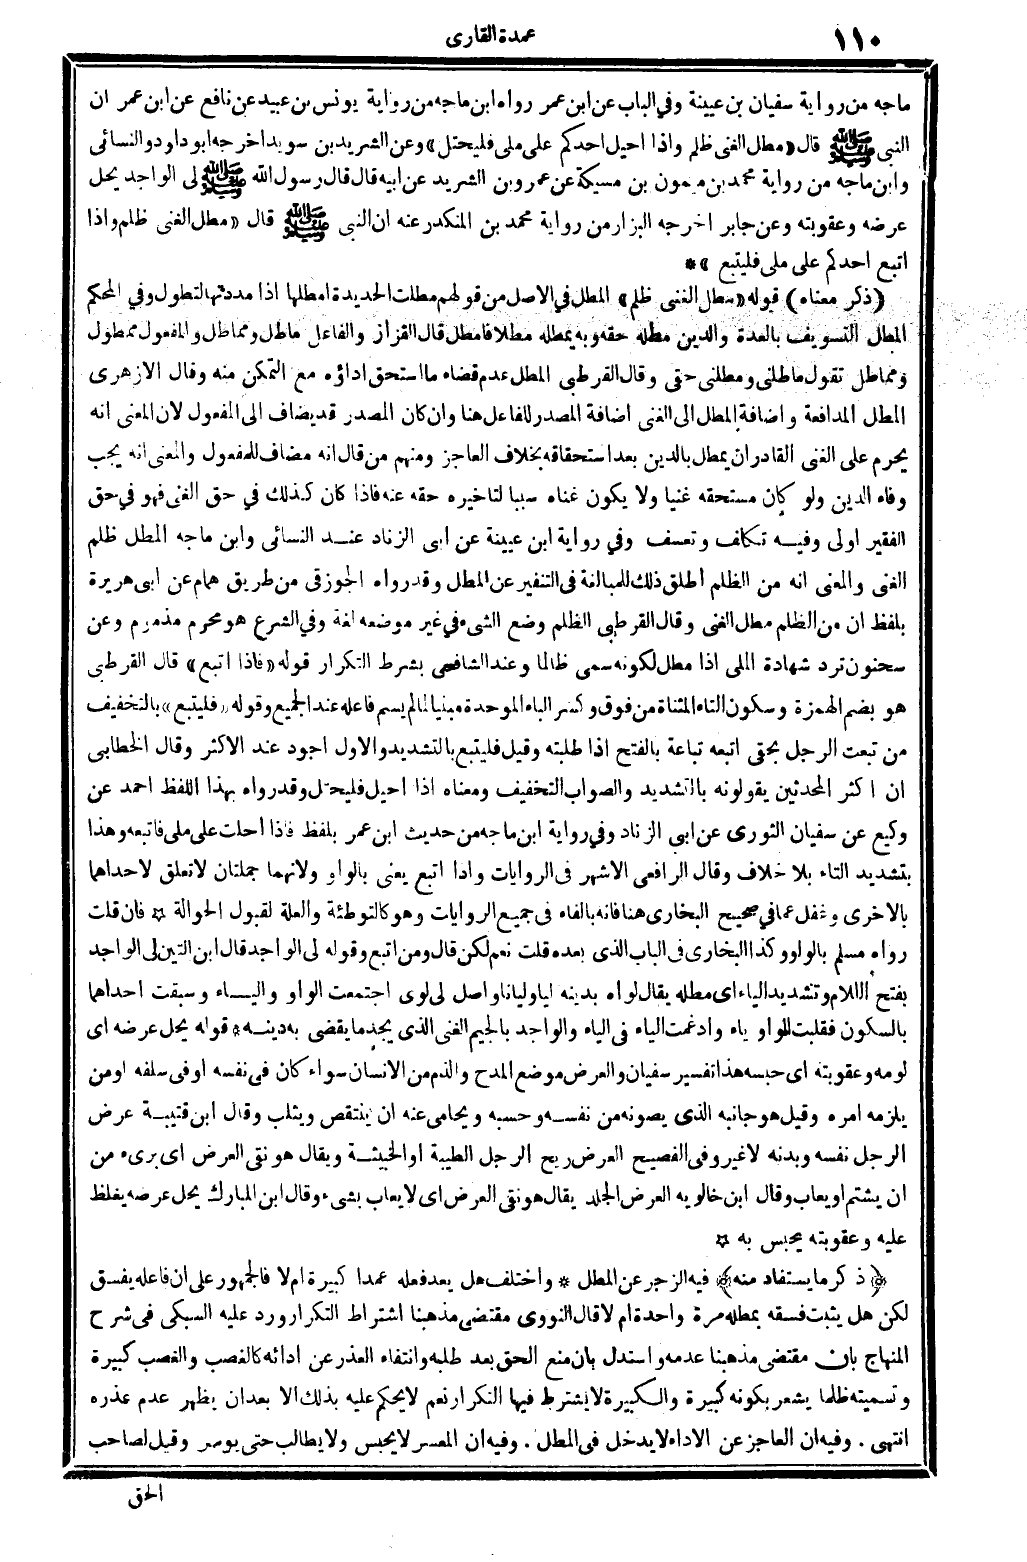 ١١٠
عمدة القارى
ماجه من رواية سفيان بن عيينة وفي الباب عن ابن عمر رواه ابن ماجه من رواية يونس بن عبيد عن نافع عن ابن عمر ان
النبي ﷺ قال «مطل الغني ظلم واذا احيل احدكم على ملي فليحتل» وعن الشريد بن سويد اخرجه ابو داود والنسائى
وابن ماجه من رواية محمد بن ميمون بن مسيكة عن عمرو بن الشريد عن ابيه قال قال رسول الله ﷺ لى الواجد يحل
عرضه وعقوبته وعن جابر اخرجه البزار من رواية محمد بن المنكدر عنه ان النبي ﷺ قال «مطل الغنى ظلم واذا
اتبع احدكم على ملى فليتبع» *
(ذكر معناه) قوله «مطل الغنى ظلم» المطل في الاصل من قولهم مطلت الحديدة امطلها اذا مددتها لتطول وفي المحكم
المطل التسويف بالعدة والدين مطله حقه وبه يمطله مطلا فامطل قال القزاز والفاعل ماطل ومماطل والمفعول ممطول
ومماطل تقول ماطلنى ومطلنى حقى وقال القرطبى المطل عدم قضاء ما استحق اداؤه مع التمكن منه وقال الازهرى
المطل المدافعة واضافة المطل الى الغنى اضافة المصدر للفاعل هنا وان كان المصدر قد يضاف الى المفعول لان المعنى انه
يحرم على الغنى القادر ان يمطل بالدين بعد استحقاقه بخلاف العاجز ومنهم من قال انه مضاف للمفعول والمعنى انه يجب
وفاء الدين ولو كان مستحقه غنيا ولا يكون غناه سببا لتاخيره حقه عنه فاذا كان كذلك في حق الغنى فهو في حق
الفقير اولى وفيه تكلف وتعسف وفي رواية ابن عيينة عن ابى الزناد عند النسائى وابن ماجه المطل ظلم
الغنى والمعنى انه من الظلم أطلق ذلك للمبالغة فى التنفير عن المطل وقد رواه الجوزقى من طريق همام عن ابى هريرة
بلفظ ان من الظلم مطل الغنى وقال القرطبى الظلم وضع الشىء في غير موضعه لغة وفي الشرع هو محرم مذموم وعن
سحنون ترد شهادة الملى اذا مطل لكونه سمى ظالما وعند الشافعى بشرط التكرار قوله «فاذا اتبع» قال القرطبى
هو بضم الهمزة وسكون التاء المثناة من فوق وكسر الباء الموحدة مبنيا لما لم يسم فاعله عند الجميع وقوله «فليتبع» بالتخفيف
من تبعت الرجل بحقى اتبعه تباعة بالفتح اذا طلبته وقيل فليتبع بالتشديد والاول اجود عند الاكثر وقال الخطابى
ان اكثر المحدثين يقولونه بالتشديد والصواب التخفيف ومعناه اذا احيل فليحتل وقد رواه بهذا اللفظ احمد عن
وكيع عن سفيان الثورى عن ابى الزناد وفي رواية ابن ماجه من حديث ابن عمر بلفظ فاذا أحلت على ملى فاتبعه وهذا
بتشديد التاء بلا خلاف وقال الرافعى الاشهر فى الروايات واذا اتبع يعنى بالواو ولانهما جملتان لا تعلق لاحداهما
بالاخرى وغفل عما في صحيح البخارى هنا فانه بالفاء فى جميع الروايات وهو كالتوطئة والعلة لقبول الحوالة ✿ فان قلت
رواه مسلم بالواو وكذا البخارى فى الباب الذى بعده قلت نعم لكن قال ومن اتبع وقوله لى الواجد قال ابن التين لى الواجد
بفتح اللام وتشديد الياء اى مطله يقال لواه بدينه ليا وليانا واصل لى لوى اجتمعت الواو والياء وسبقت احداهما
بالسكون فقلبت الواو ياء وادغمت الياء فى الياء والواجد بالجيم الغنى الذى يجد ما يقضى به دينه * قوله يحل عرضه اى
لومه وعقوبته اى حبسه هذا تفسير سفيان والعرض موضع المدح والذم من الانسان سواء كان فى نفسه او فى سلفه او من
يلزمه امره وقيل هو جانبه الذى يصونه من نفسه وحسبه ويحامى عنه ان ينتقص ويثلب وقال ابن قتيبة عرض
الرجل نفسه وبدنه لا غير وفى الفصيح العرض ريح الرجل الطيبة او الخبيثة ويقال هو نقى العرض اى برىء من
ان يشتم او يعاب وقال ابن خالويه العرض الجلد يقال هو نقى العرض اى لا يعاب بشىء وقال ابن المبارك يحل عرضه يغلظ
عليه وعقوبته يحبس به ✿
﴿ذكر ما يستفاد منه﴾ فيه الزجر عن المطل * واختلف هل يعد فعله عمدا كبيرة ام لا فالجمهور على ان فاعله يفسق
لكن هل يثبت فسقه بمطله مرة واحدة ام لا قال النووى مقتضى مذهبنا اشتراط التكرار ورد عليه السبكى فى شرح
المنهاج بان مقتضى مذهبنا عدمه واستدل بان منع الحق بعد طلبه وانتفاء العذر عن ادائه كالغصب والغصب كبيرة
وتسميته ظلما يشعر بكونه كبيرة والكبيرة لا يشترط فيها التكرار نعم لا يحكم عليه بذلك الا بعد ان يظهر عدم عذره
انتهى . وفيه ان العاجز عن الاداء لا يدخل فى المطل . وفيه ان المعسر لا يحبس ولا يطالب حتى يوسر وقيل لصاحب
الحق